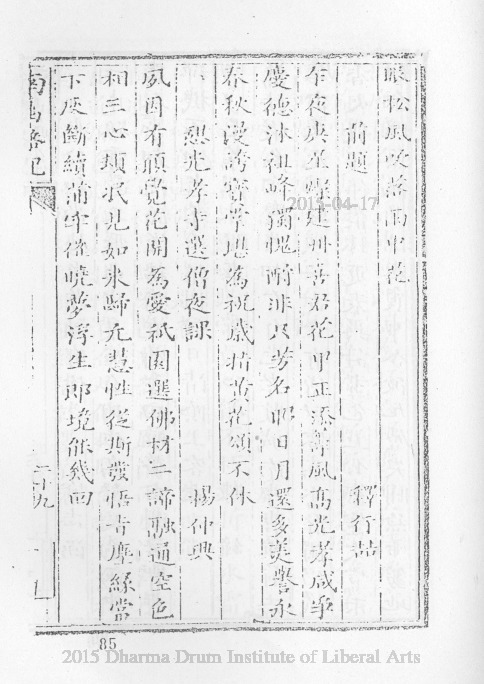 眼松風吹落雨中花
前題 釋行喆
午夜庚星燦建州喜君花甲正添籌風高光孝咸爭
慶德沐祖峰獨愧酬非只芳名昭日月還多美譽永
春秋漫誇寶掌堪為祝歲指黃花頌不休
懇光孝寺選僧夜課 楊仲興
夙因有願覺花開為愛祇園選佛材二諦融通空色
相三心頓泯見如來歸元慧性從斯發悟去塵緣當
下灰斷續蒲牢催曉夢浮生即境能幾回
二十九
85
2015-04-17
2015 Dharma Drum Institute of Liberal Arts